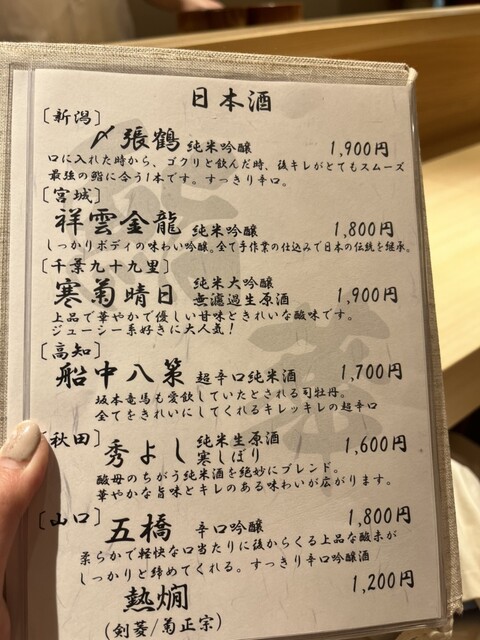 日本酒
〔新潟〕
〆張鶴 純米吟醸 1,900円
口に入れた時から、ゴクリと飲んだ時、後キレがとてもスムーズ
最強の鮨に合う1本です。すっきり辛口。
〔宮城〕
祥雲金龍 純米吟醸 1,800円
しっかりボディの味わい吟醸。全て手作業の仕込みで日本の伝統を継承。
〔千葉九十九里〕
寒菊晴日 純米大吟醸 無濾過生原酒 1,900円
上品で華やかで優しい甘味ときれいな酸味です。
ジューシー系好きに大人気！
〔高知〕
船中八策 超辛口純米酒 1,700円
坂本竜馬も愛飲していたとされる司牡丹。
全てをきれいにしてくれるキレッキレの超辛口
秋田〕
秀よし 純米生原酒 寒しぼり 1,600円
酸母のちがう純米酒を絶妙にブレンド。
華やかな旨味とキレのある味わいが広がります。
〔山口〕
五橋 辛口吟醸 1,800円
柔らかで軽快な口当たりに後からくる上品な酸味が
しっかりと締めてくれる。すっきり辛口吟醸酒
熱燗 1,200円
(剣菱/菊正宗)